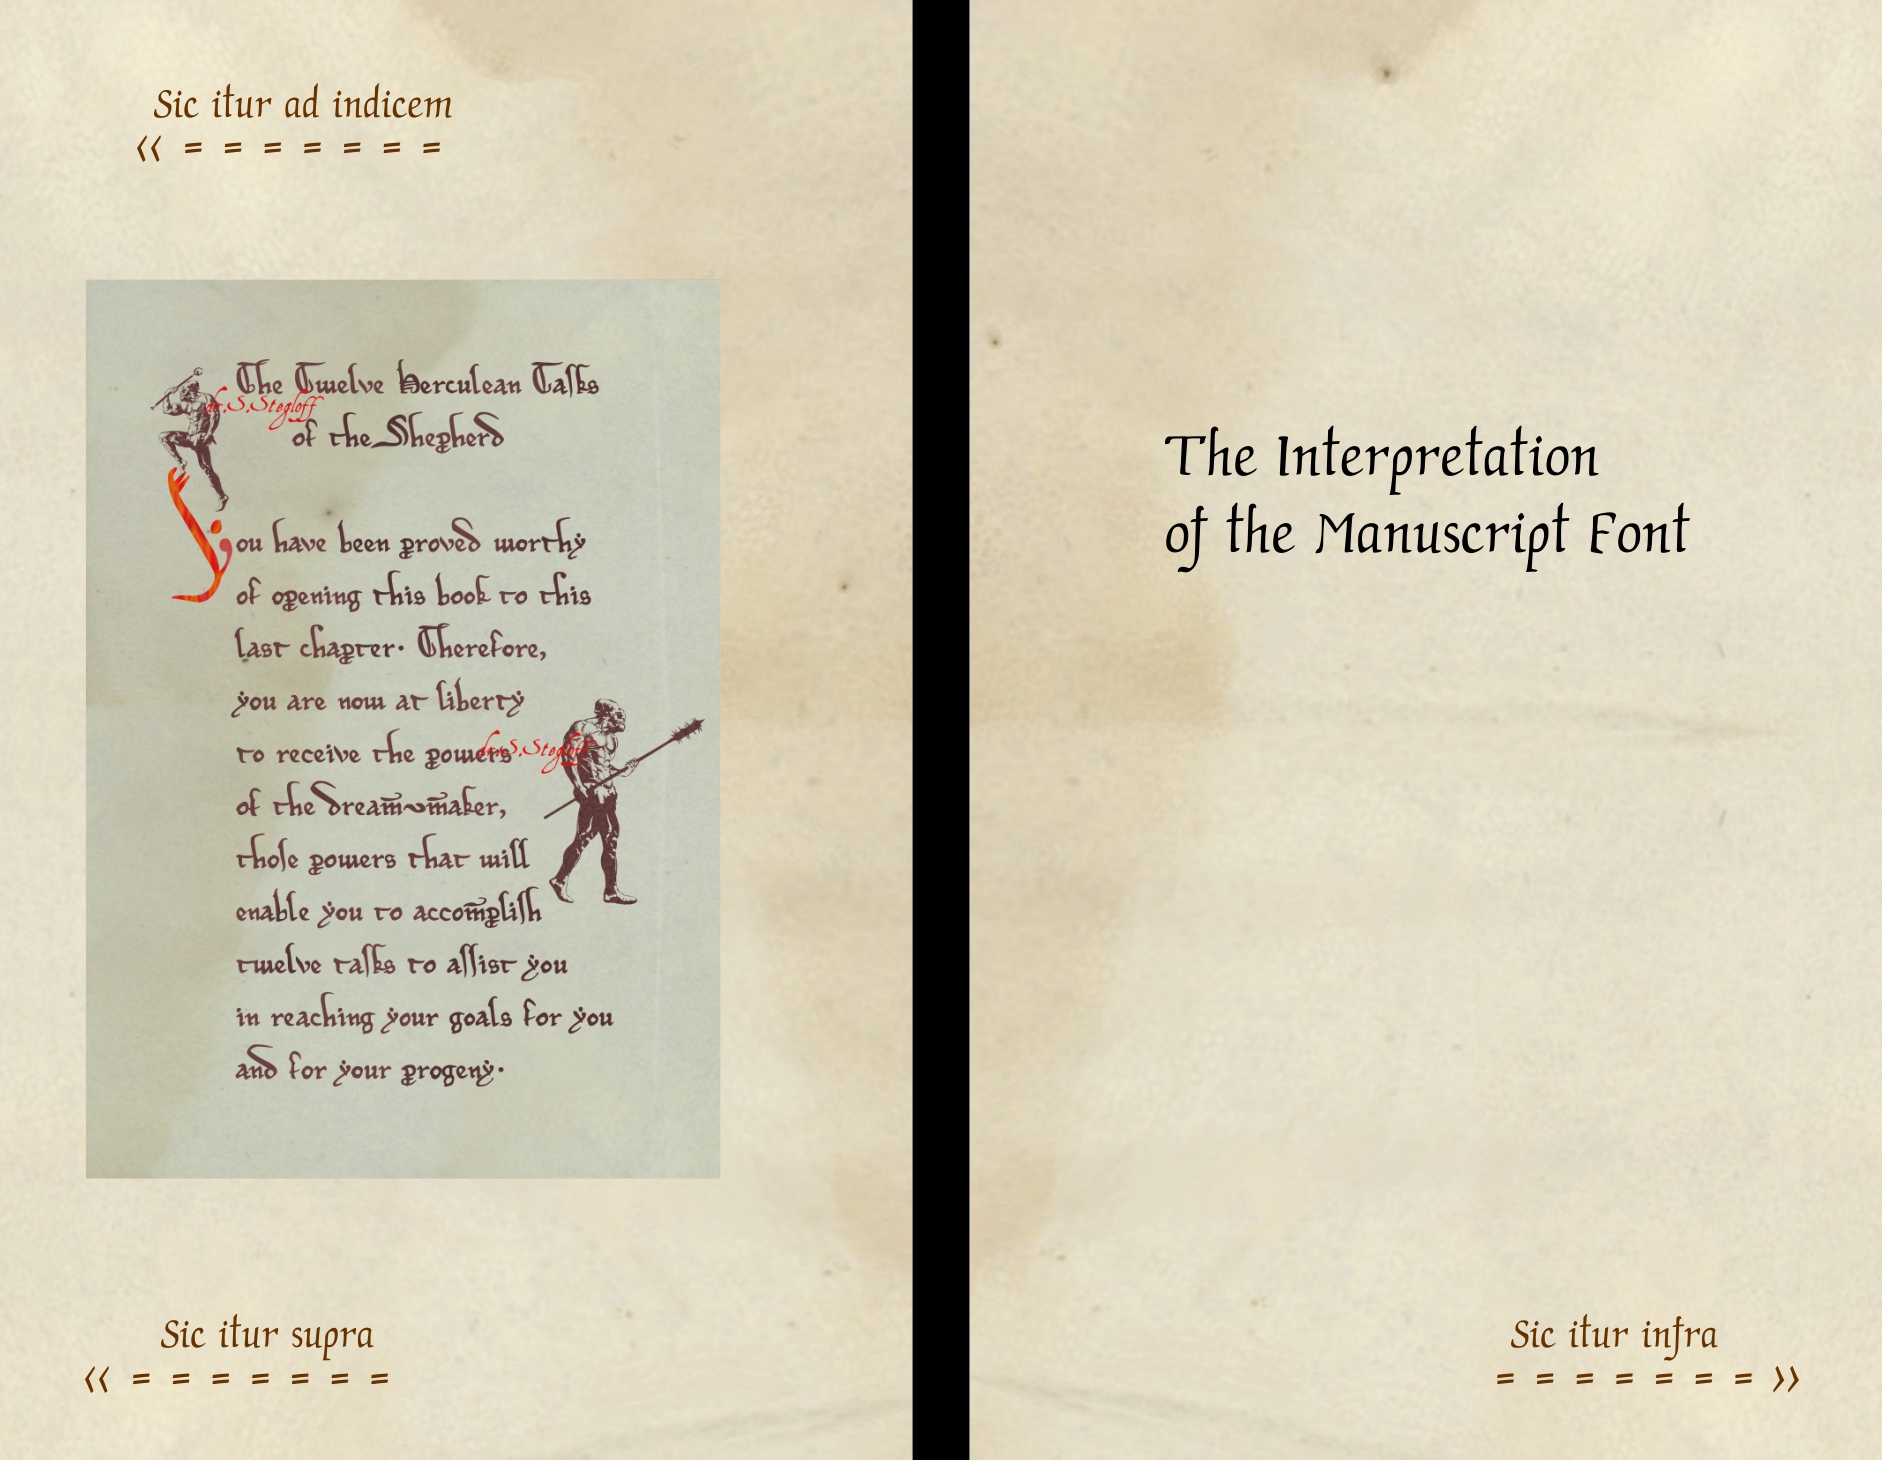 Sic itur ad indicem
<< = = = = = = =
The Twelve Herculean Taſks
dr.S.Stegloff
of the Shepherd
You have been proved worthy
of opening this book to this
last chapter· Therefore,
you are now at liberty
to receive the powers
dr.S.Stegloff
of the dream~maker,
thoſe powers that will
enable you to accompliſh
twelve taſks to aſſist you
in reaching your goals for you
and for your progeny·
Sic itur supra
<< = = = = = = =
The Interpretation
of the Manuscript Font
Sic itur infra
= = = = = = = >>